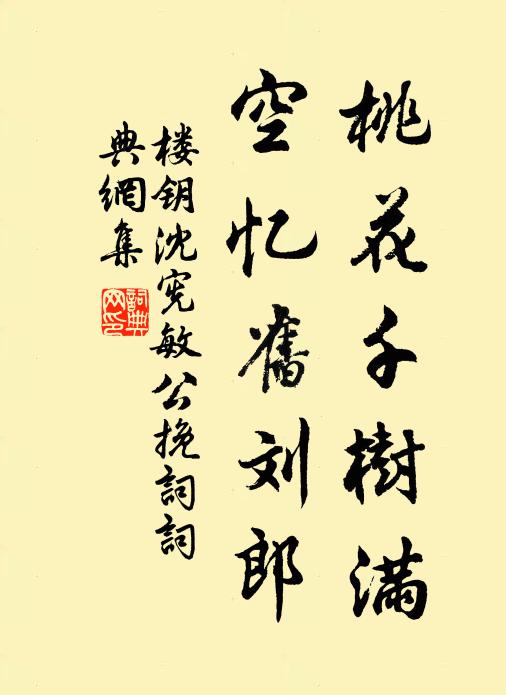 桃花千樹满
空忆舊刘郎
楼钥沈宪敏公挽詞詞
典網集
詞典网印